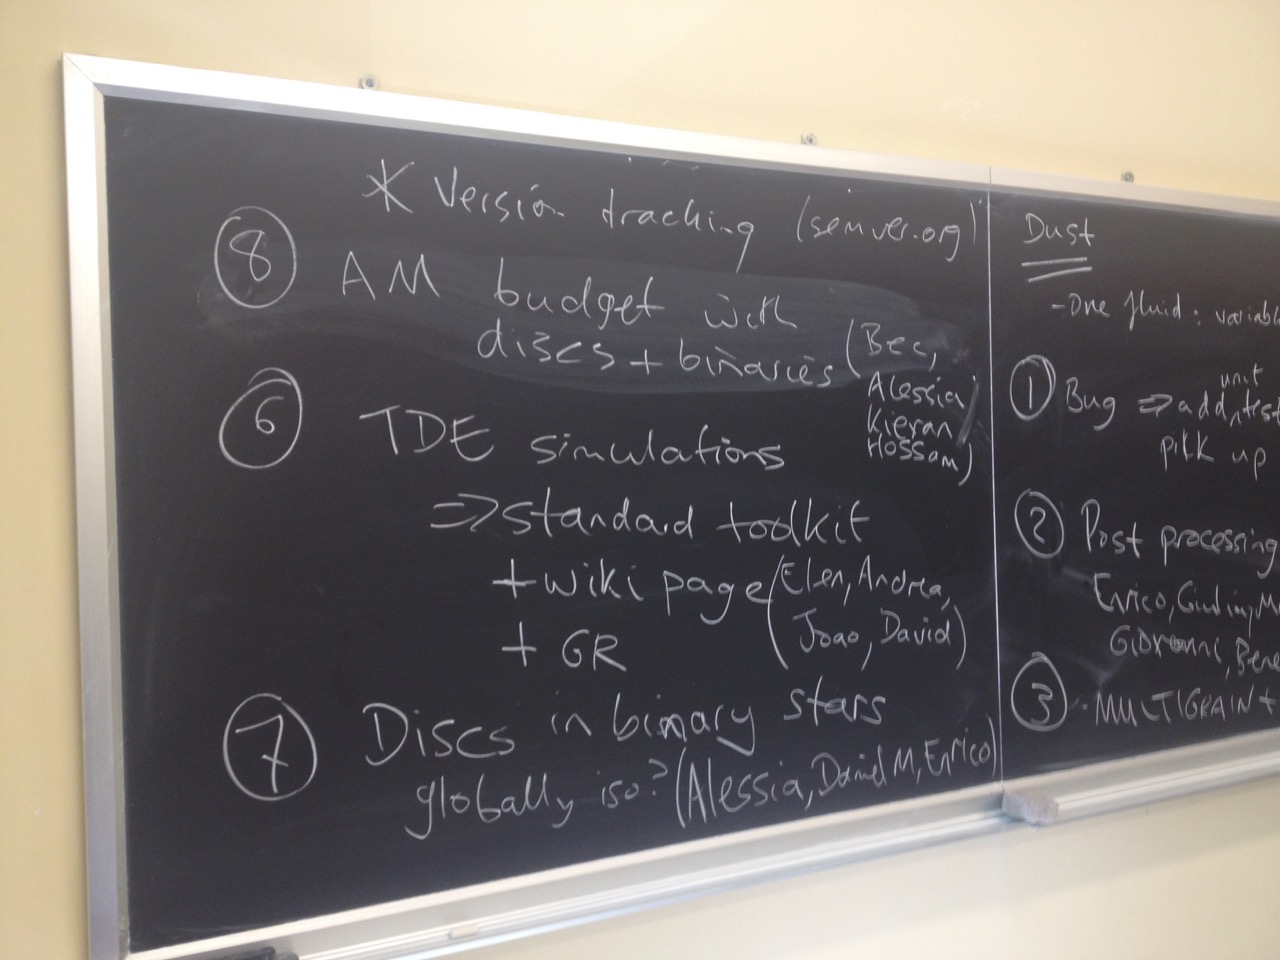 * Version tracking (semver.org)
⑧ AM budget with
discs + binaries (Bec,
Alessia
Kieran
Hossam)
⑥ TDE simulations
⇒ standard toolkit
+ wiki page (Elen, Andrea,
+ GR Joao, David)
⑦ Discs in binary stars
globally iso? (Alessia, Daniel M, Enrico)
Dust
- One fluid: variabl
unit
① Bug ⇒ add, test
pick up
② Post processing
Enrico, M
Giovanni, Bene
③ · MULTIGRAIN +